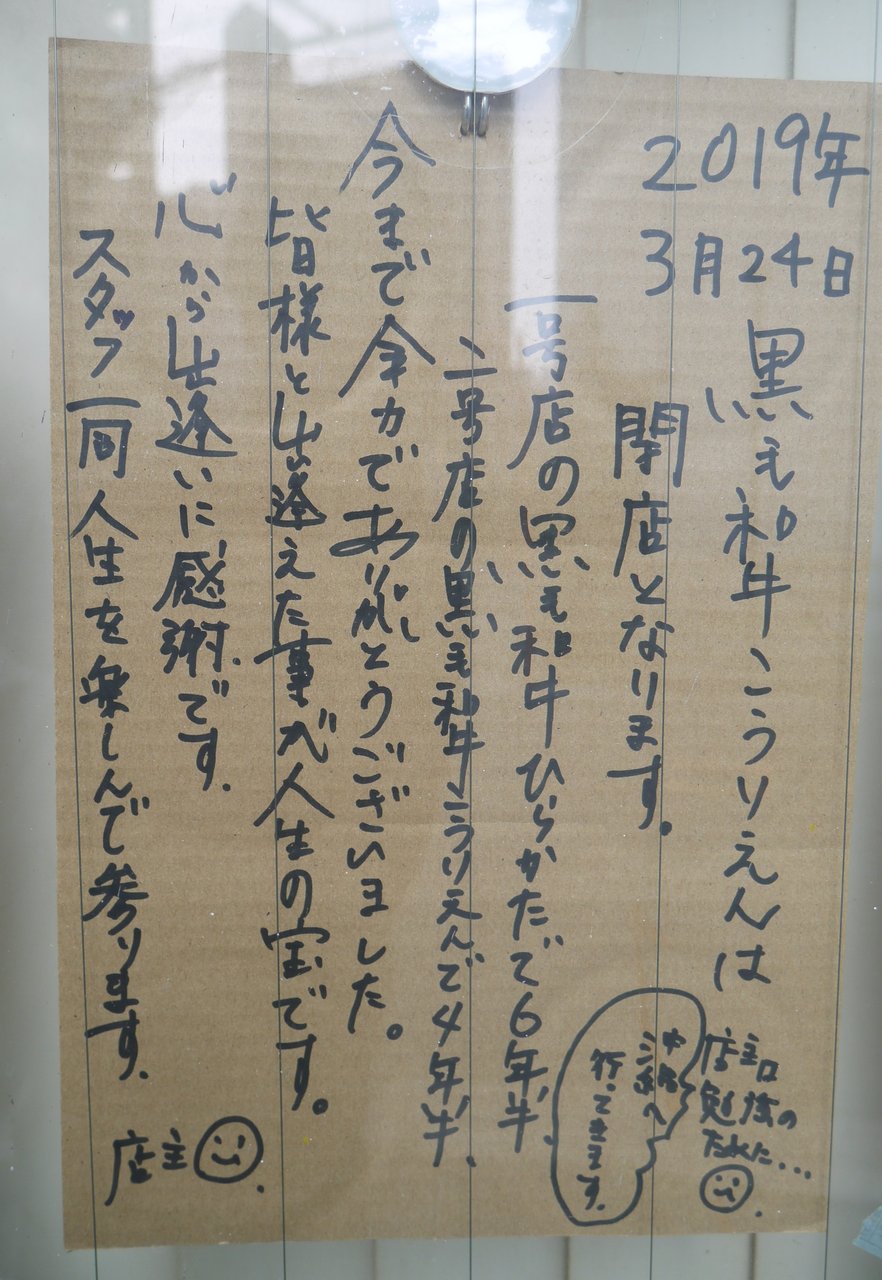 2019年
3月24日
黒毛和牛こうりえんは
閉店となります。
一号店の黒毛和牛ひらかたで6年半、
二号店の黒毛和牛こうりえんで4年半、
今まで全力でありがとうございました。
皆様と出逢えた事が人生の宝です。
心から出逢いに感謝です。
スタッフ一同人生を楽しんで参ります。
店主
店主
勉強の
ために...
沖縄へ
行ってきます。